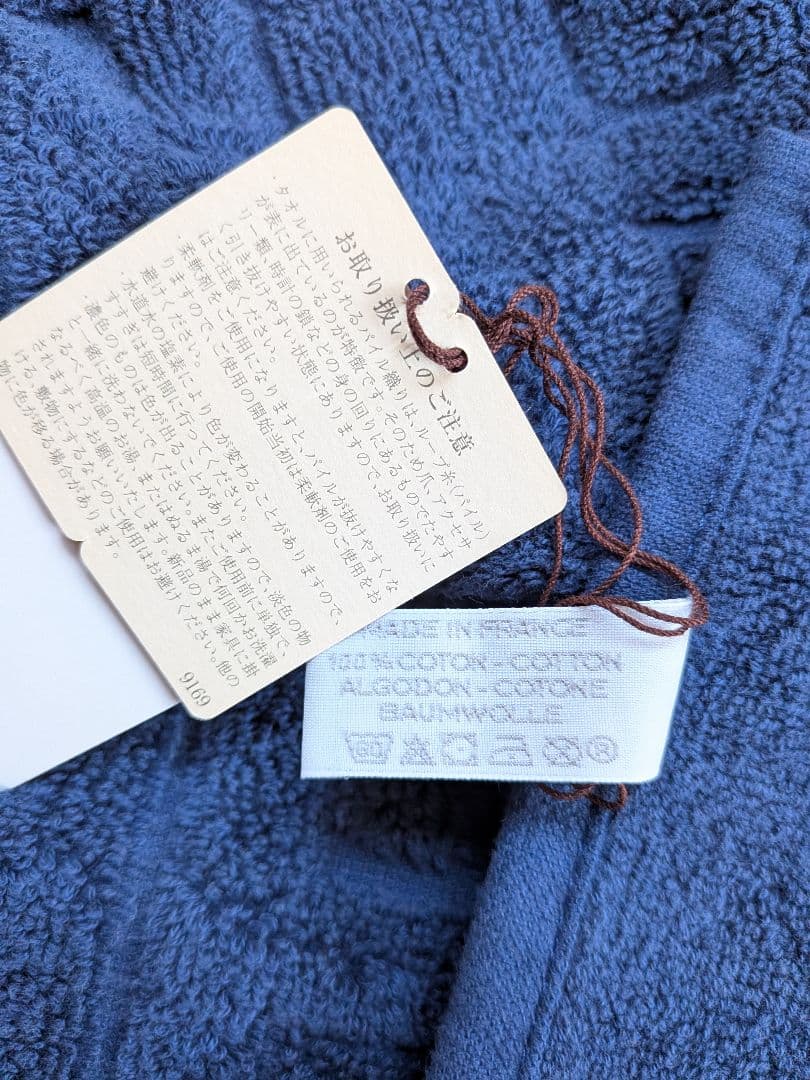 お取り扱い上のご注意
・タオルに用いられるパイル織りは、ループ糸(パイル)
が表に出ているのが特徴です。そのため爪、アクセサ
リー類、時計の鎖などの身の回りにあるものでたやす
く引き抜けやすい状態にありますので、お取り扱いに
はご注意ください。
・柔軟剤をご使用になりますと、パイルが抜けやすくな
りますので、ご使用の開始当初は柔軟剤のご使用をお
避けください。
・水道水の塩素により色が変わることがありますので、
すすぎは短時間に行ってください。
・濃色のものは色が出ることがありますので、淡色の物
と一緒に洗わないでください。またご使用前に単独で、
なるべく高温のお湯、またはぬるま湯で何回かお洗濯
されますようお願いいたします。新品のまま家具に掛
ける、敷物にするなどのご使用はお避けください。他の
物に色が移る場合があります。
9169
MADE IN FRANCE
100% COTON - COTTON
ALGODON - COTONE
BAUMWOLLE
®